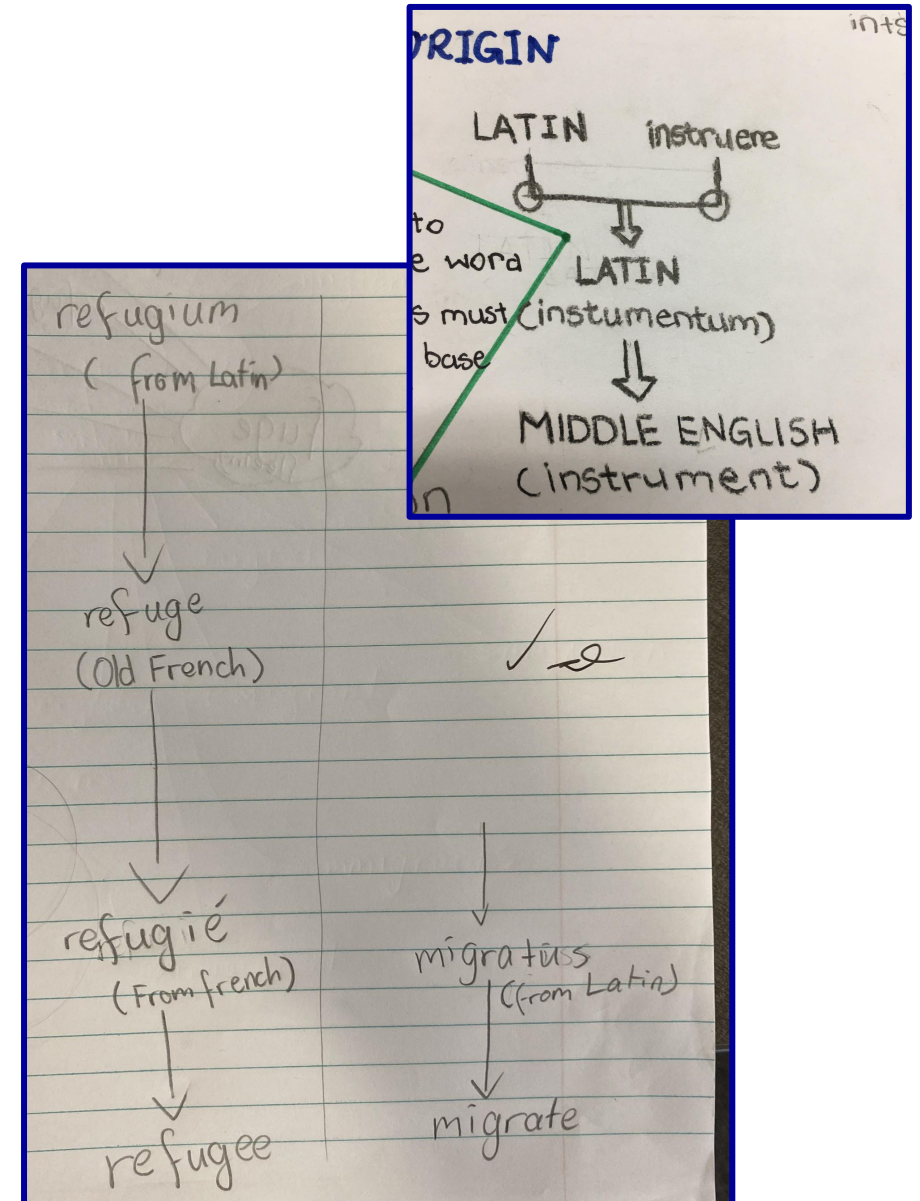 ORIGIN
ints
LATIN instruere
to
e word
s must
base
n
LATIN
(instumentum)
MIDDLE ENGLISH
(instrument)
refugium
(from Latin)
refuge
(Old French)
refugié
(From french)
refugee
migratus
(from Latin)
migrate